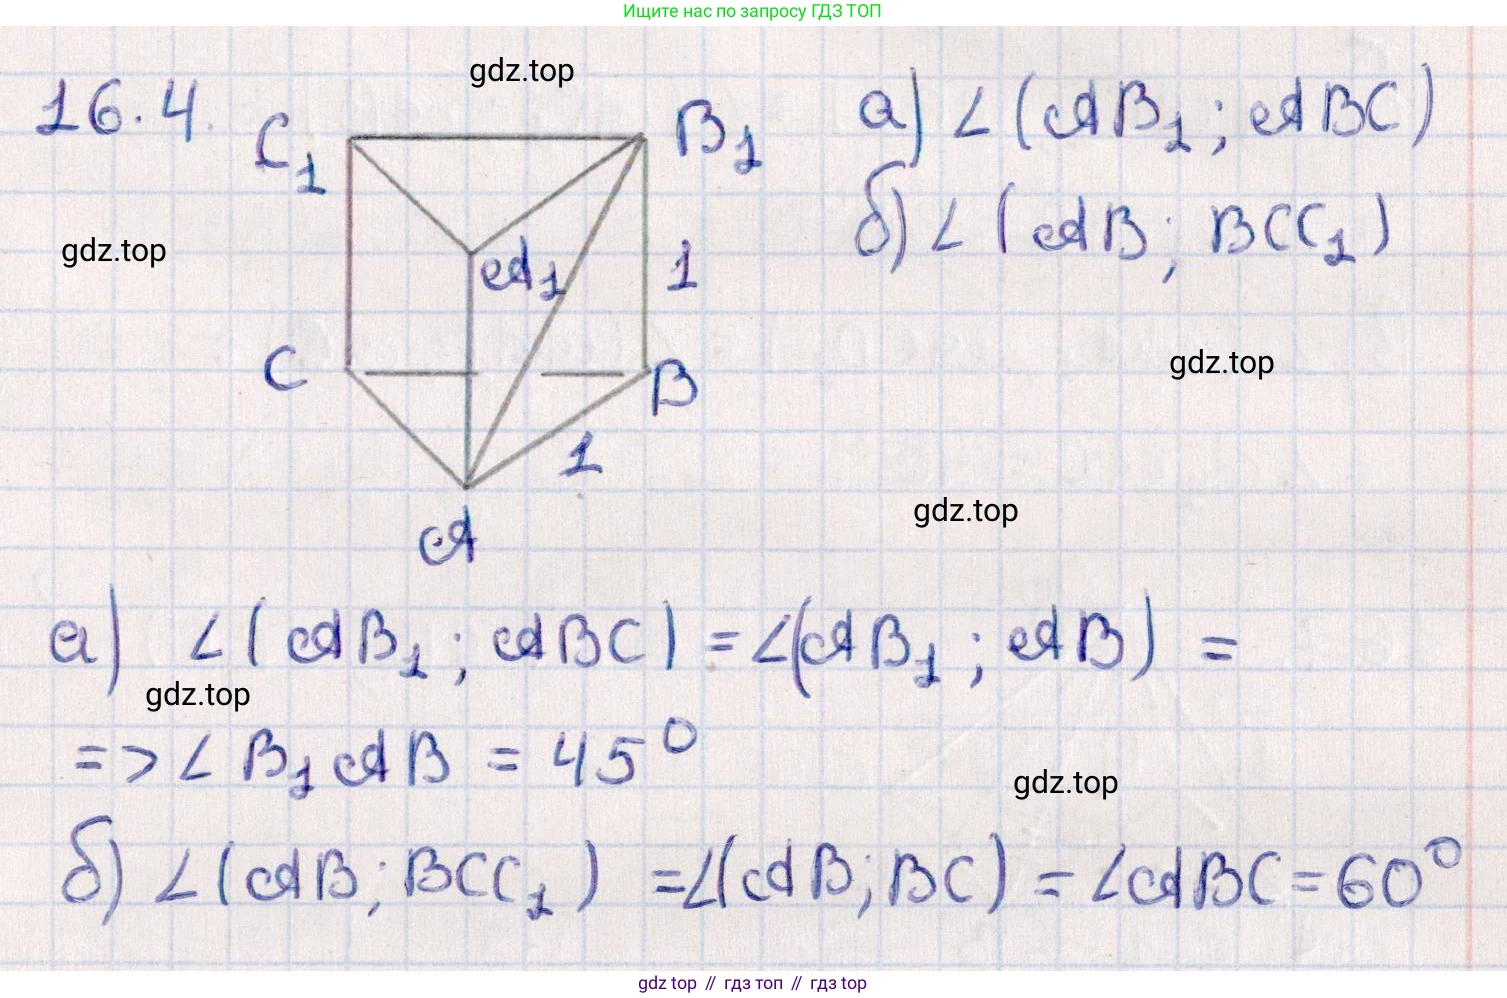 Ищите нас по запросу ГДЗ ТОП
gdz.top
16.4.
C₁
B₁
а) ∠(AB₁; ABC)
б) ∠(AB; BCC₁)
gdz.top
A₁
1
C
B
gdz.top
1
gdz.top
A
а) ∠(AB₁; ABC) = ∠(AB₁; AB) =
gdz.top
=> ∠B₁AB = 45°
gdz.top
б) ∠(AB; BCC₁) = ∠(AB; BC) = ∠ABC = 60°
gdz.top // гдз топ // gdz top